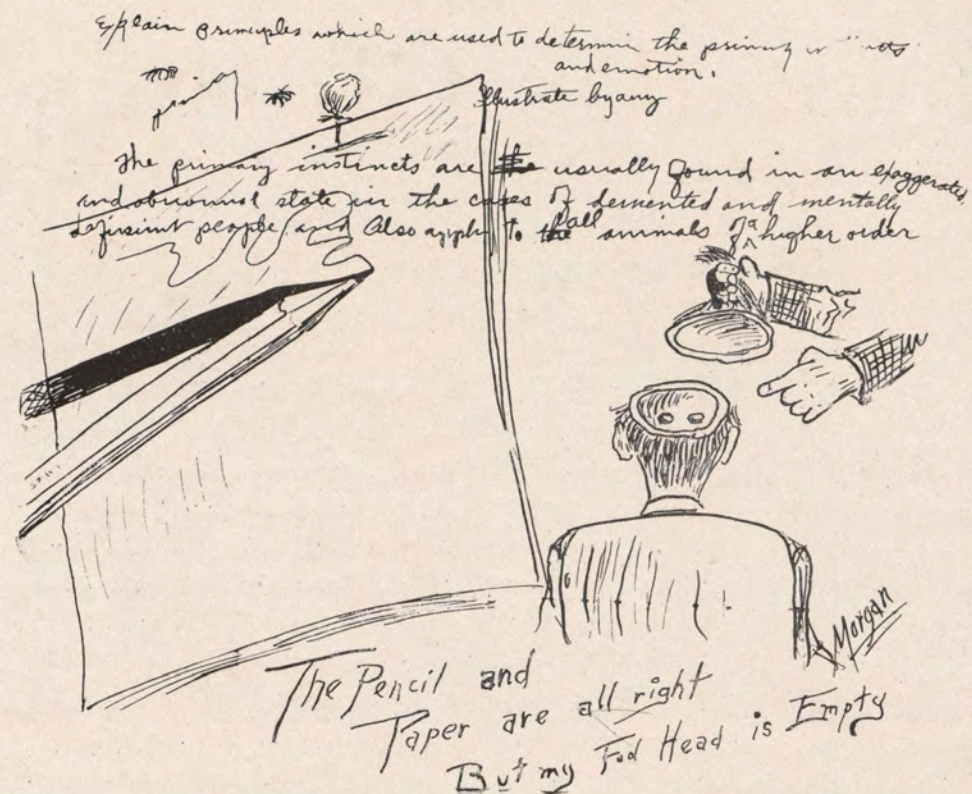 Explain principles which are used to determin the primary
and emotion.
Illustrate by any
The primary instincts are the usually found in an exaggerated,
and abnormal state in the cases of demented and mentally
people and Also apply to the all animals of a higher order
Morgan
The Pencil and
Paper are all right
But my Fod Head is Empty